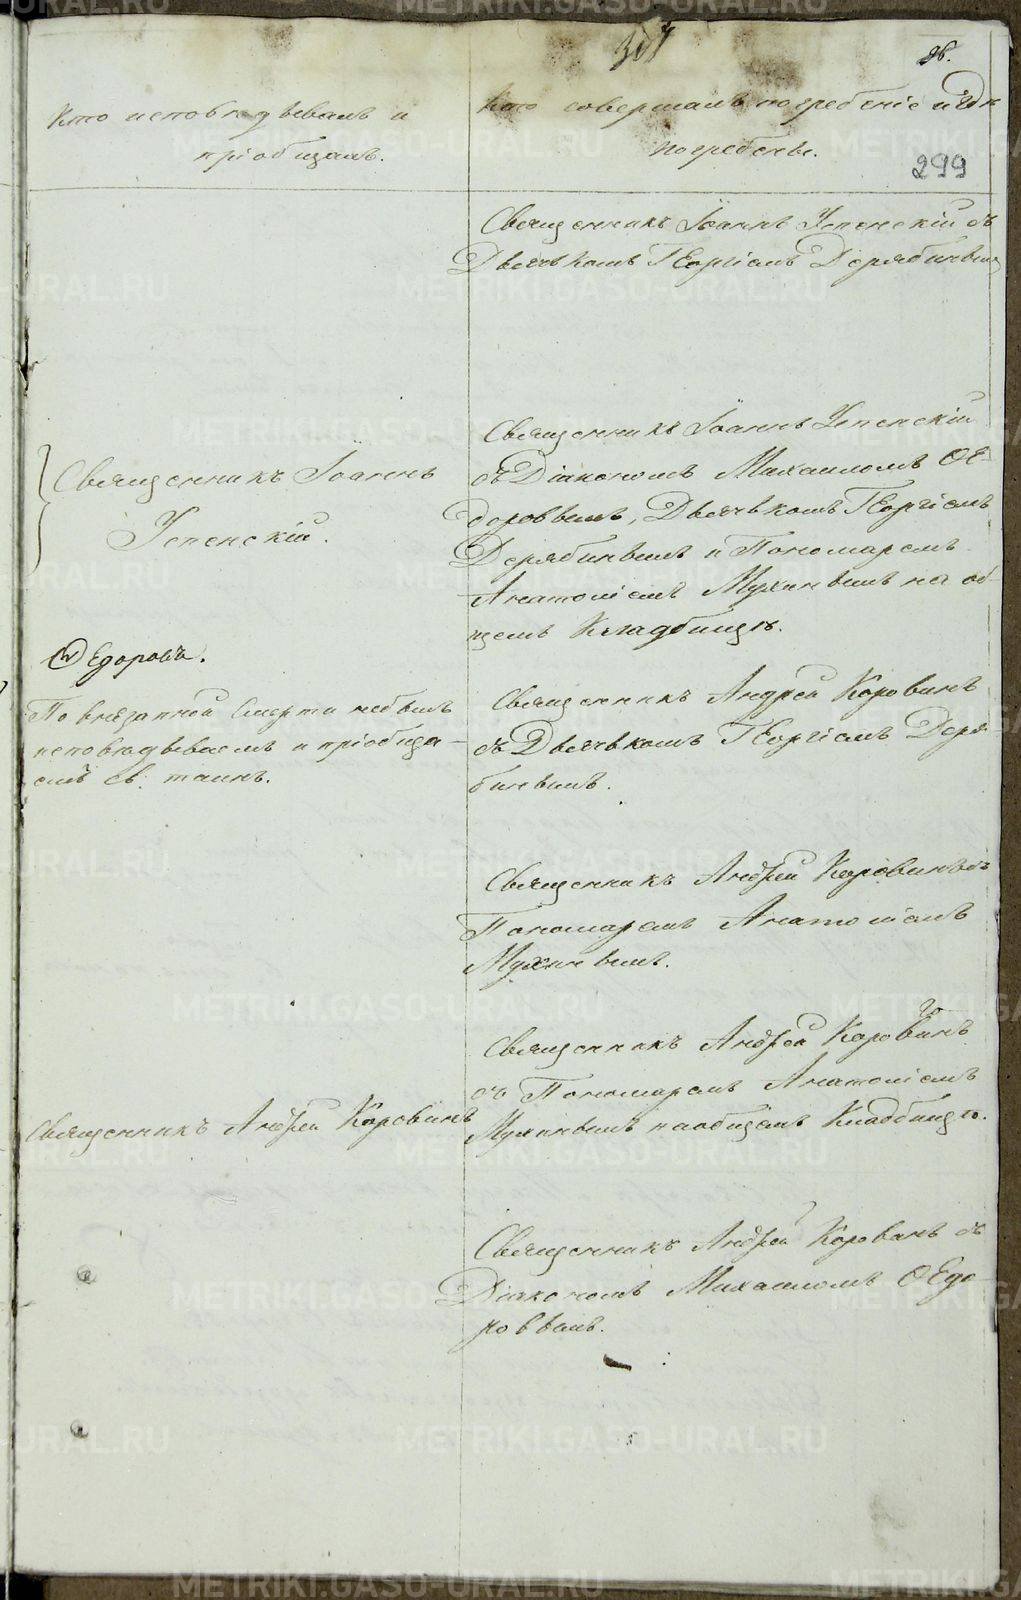 98.
299
Кто исповѣдывалъ и
пріобщалъ.
Кто совершалъ погребеніе и гдѣ
погребены.
Священникъ Іоаннъ Успенскій съ
Дьячькомъ Георгіемъ Дерябинымъ
Священникъ Іоаннъ
Успенскій.
Священникъ Іоаннъ Успенскій
съ Діакономъ Михаиломъ Ѳе-
доровымъ, Дьячькомъ Георгіемъ
Дерябинымъ и Пономаремъ
Анатоліемъ Мухинымъ на об-
щемъ Кладбищѣ.
Ѳедоровъ.
По внезапной Смерти небылъ
исповѣдываемъ и пріобща-
емъ св. таинъ.
Священникъ Андрей Коровинъ
съ Дьячькомъ Георгіемъ Деря-
бинымъ.
Священникъ Андрей Коровинъ съ
Пономаремъ Анатоліемъ
Мухинымъ.
Священникъ Андрей Коровинъ
съ Пономаремъ Анатоліемъ
Мухинымъ на общемъ Кладбищѣ.
Священникъ Андрей Коровинъ
Священникъ Андрей Коровинъ съ
Діакономъ Михаиломъ Ѳедо-
ровымъ.
METRIKI.GASO-URAL.RU